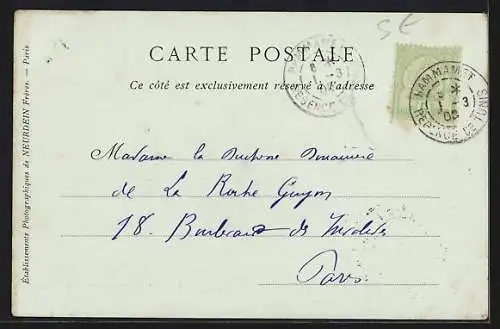 SE
CARTE POSTALE
Ce côté est exclusivement réservé à l'adresse
HAMMAMET
RÉGENCE DE TUNIS
HAMMAMET
1 -3
00
RÉGENCE DE TUNIS
Madame la Duchesse Douairière
de La Roche Guyon
18. Boulevard des Invalides
Paris
Établissements Photographiques de NEURDEIN Frères. — Paris